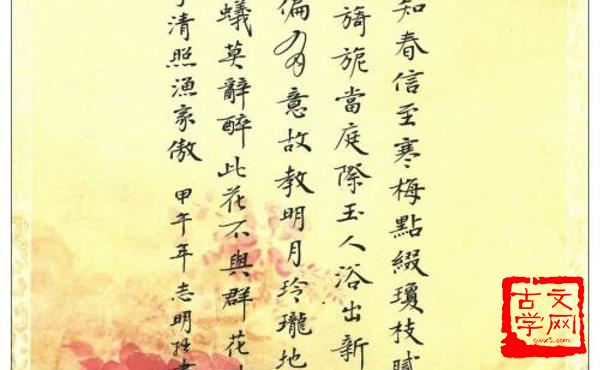 知春信至寒梅點綴瓊枝膩
旖旎當庭際玉人浴出新
偏有意故教明月玲瓏地
蟻莫辭醉此花不與群花
清照漁家傲 甲午年志明拙書
古文
学网